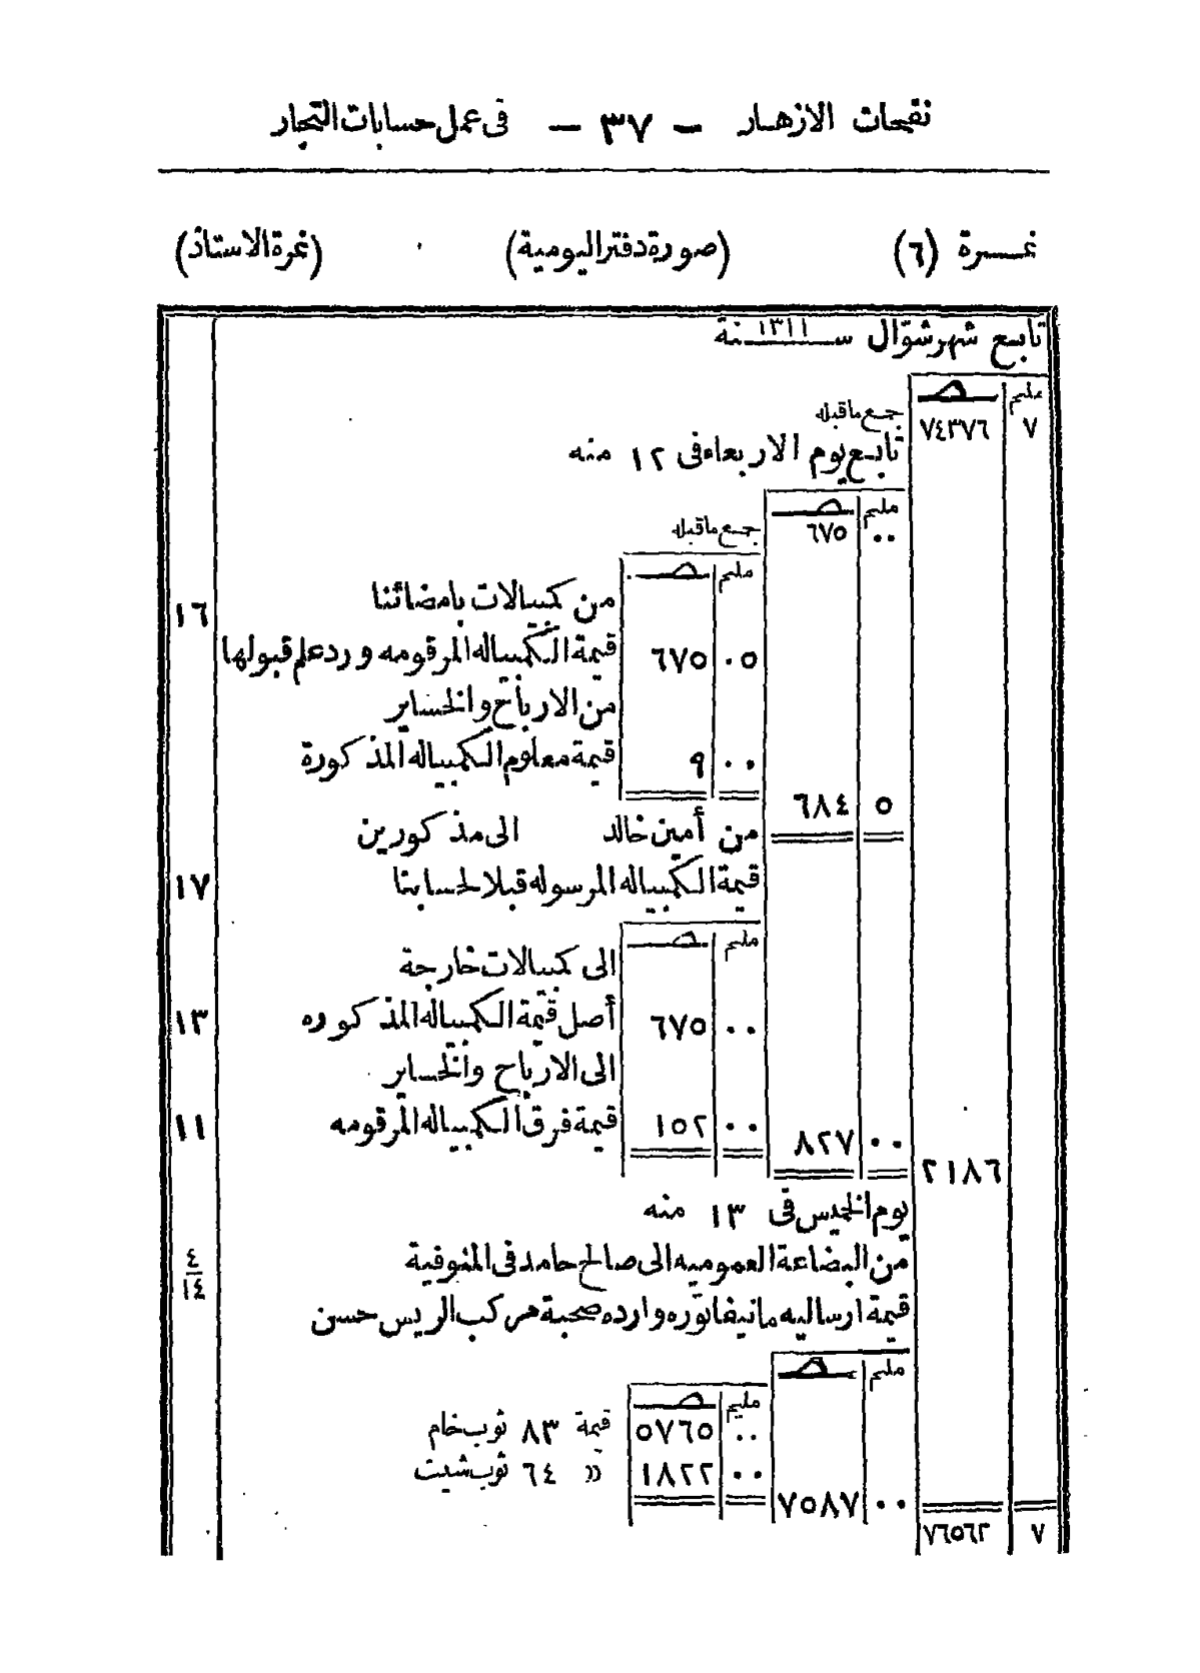 نفحات الازهار - ٣٧ - فى عمل حسابات التجار
نمرة (٦) (صورة دفتر اليومية) (نمرة الاستاذ)
تابع شهر شوّال سنة ١٣١١
مليم صـ
٧ ٧٤٣٧٦ جمع ماقبله
تابع يوم الاربعاء فى ١٢ منه
مليم صـ
٠٠ ٦٧٥ جمع ماقبله
مليم صـ
من كمبيالات بامضائنا ١٦
٠٥ ٦٧٥ قيمة الكمبياله المرقومه ورد علم قبولها
من الارباح والخساير
٠٠ ٩ قيمة معلوم الكمبياله المذكورة
٥ ٦٨٤
من أمين خالد الى مذكورين
قيمة الكمبياله المرسوله قبلا لحسابنا ١٧
مليم صـ
الى كمبيالات خارجة
٠٠ ٦٧٥ أصل قيمة الكمبياله المذكوره ١٣
الى الارباح والخساير
٠٠ ١٥٢ قيمة فرق الكمبياله المرقومه ١١
٠٠ ٨٢٧
٢١٨٦
يوم الخميس فى ١٣ منه
من البضاعة العموميه الى صالح حامد فى المنوفية ٤/١٤
قيمة ارساليه مانيفاتوره وارده صحبة مركب الريس حسن
مليم صـ
مليم صـ
٠٠ ٥٧٦٥ قيمة ٨٣ ثوب خام
٠٠ ١٨٢٢ » ٦٤ ثوب شيت
٠٠ ٧٥٨٧
٧ ٧٦٥٦٢